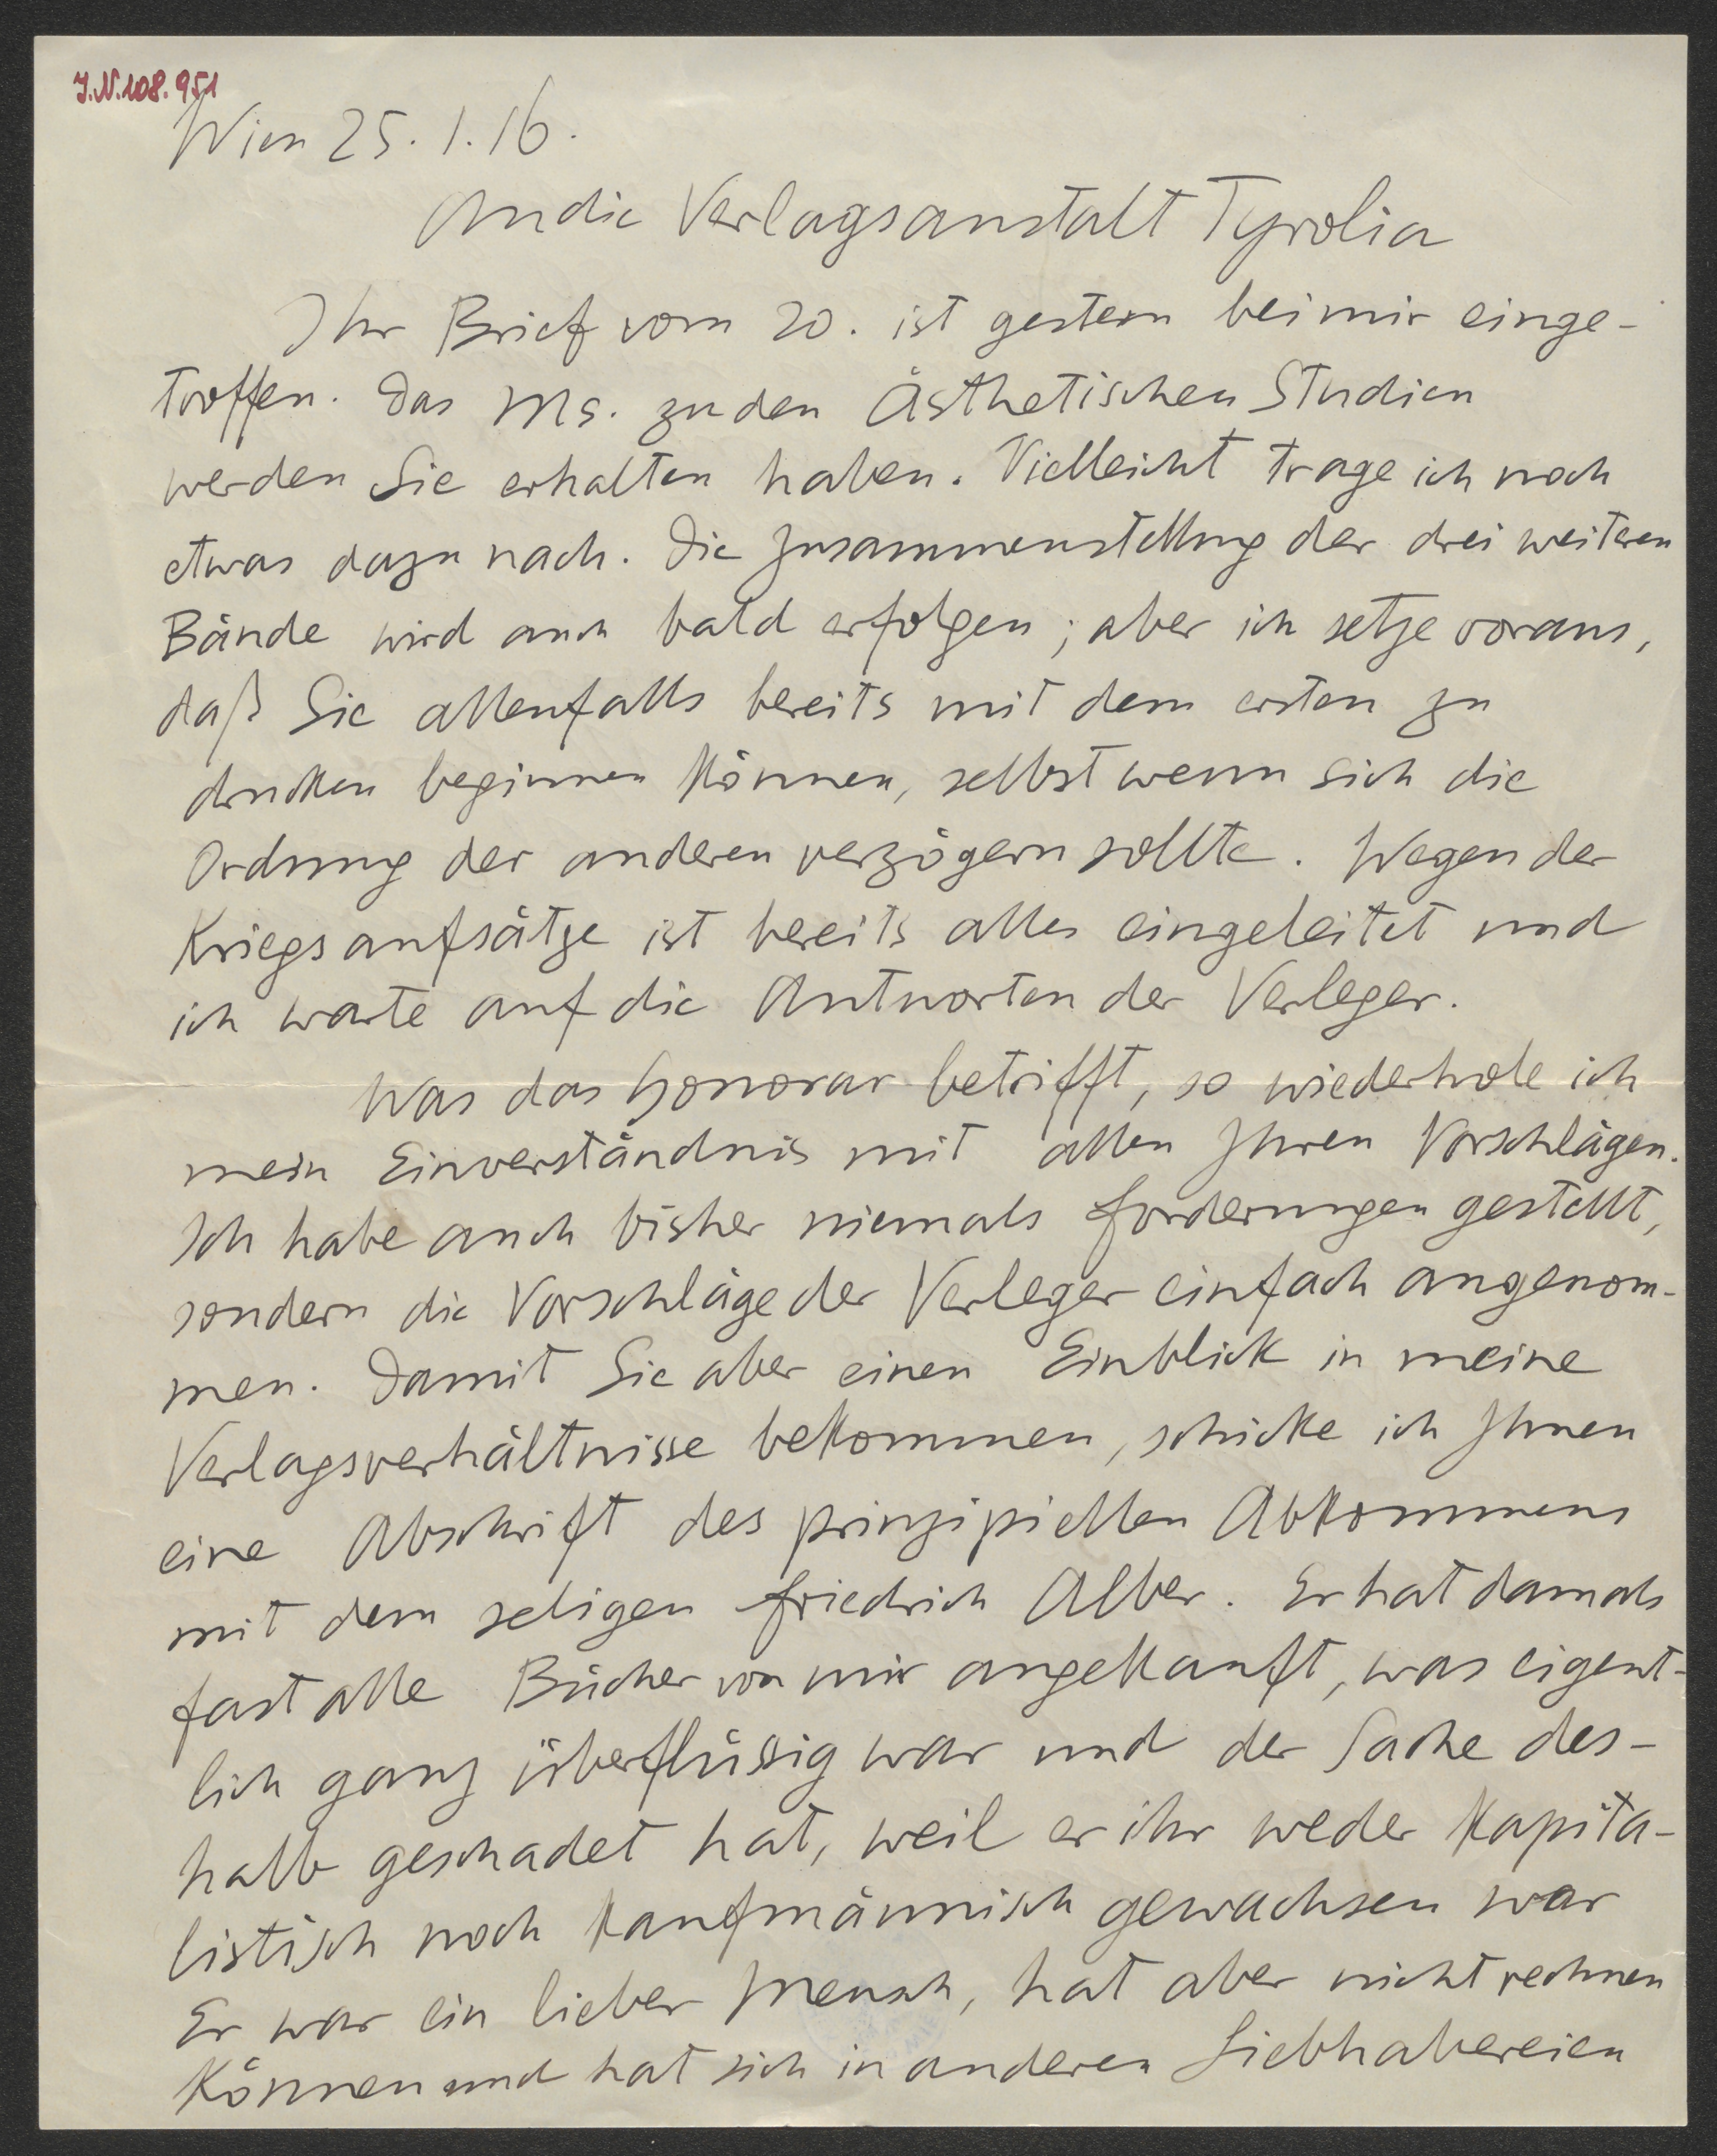 J.N. 108.951
Wien 25. 1. 16.
An die Verlagsanstalt Tyrolia
Ihr Brief vom 20. ist gestern bei mir einge-
troffen. Das Ms. zu den Ästhetischen Studien
werden Sie erhalten haben. Vielleicht trage ich noch
etwas dazu nach. Die Zusammenstellung der drei weiteren
Bände wird auch bald erfolgen; aber ich setze voraus,
daß Sie allenfalls bereits mit dem ersten zu
drucken beginnen können, selbst wenn sich die
Ordnung der anderen verzögern sollte. Wegen der
Kriegsaufsätze ist bereits alles eingeleitet und
ich warte auf die Antworten der Verleger.
Was das Honorar betrifft, so wiederhole ich
mein Einverständnis mit allen Ihren Vorschlägen.
Ich habe auch bisher niemals Forderungen gestellt,
sondern die Vorschläge der Verleger einfach angenom-
men. Damit Sie aber einen Einblick in meine
Verlagsverhältnisse bekommen, schicke ich Ihnen
eine Abschrift des prinzipiellen Abkommens
mit dem seligen Friedrich Alber. Er hat damals
fast alle Bücher von mir angekauft, was eigent-
lich ganz überflüssig war und der Sache des-
halb geschadet hat, weil er ihr weder kapita-
listisch noch kaufmännisch gewachsen war
Er war ein lieber Mensch, hat aber nicht rechnen
können und hat sich in anderen Liebhabereien